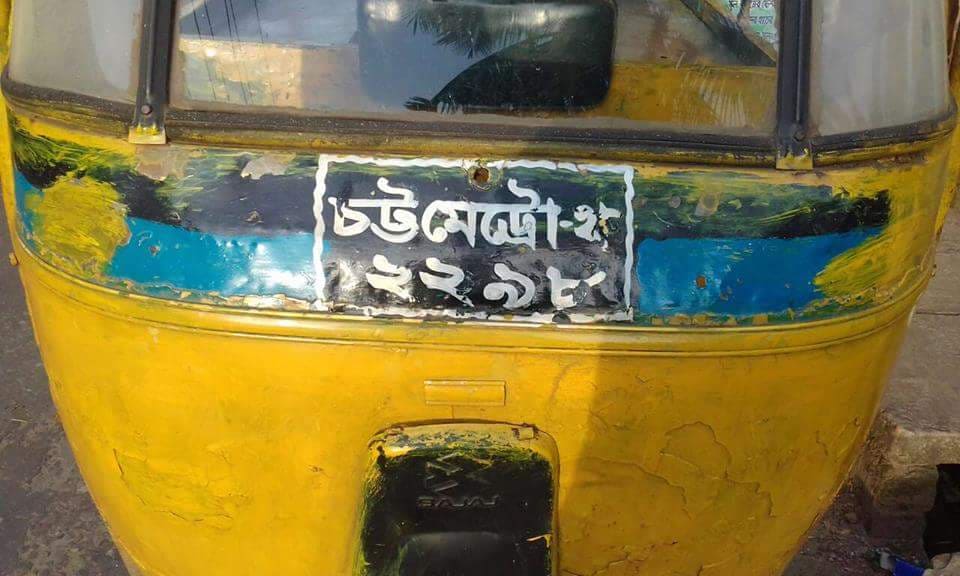 চট্টমেট্রো-থ
২২৯৮
BAJAJ